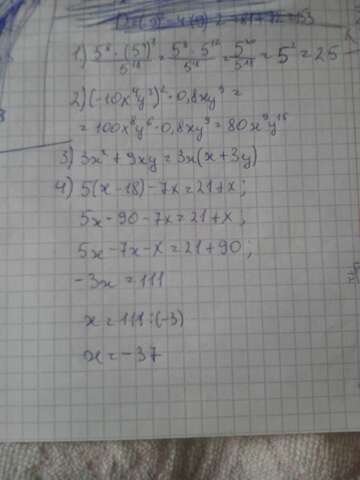 1) 5⁸ · (5³)⁴ / 5¹⁸ = 5⁸ · 5¹² / 5¹⁸ = 5²⁰ / 5¹⁸ = 5² = 25
2) (-10x⁴y³)² · 0,8xy⁹ =
= 100x⁸y⁶ · 0,8xy⁹ = 80x⁹y¹⁵
3) 3x² + 9xy = 3x(x + 3y)
4) 5(x - 18) - 7x = 21 + x;
5x - 90 - 7x = 21 + x;
5x - 7x - x = 21 + 90;
-3x = 111
x = 111 : (-3)
x = -37